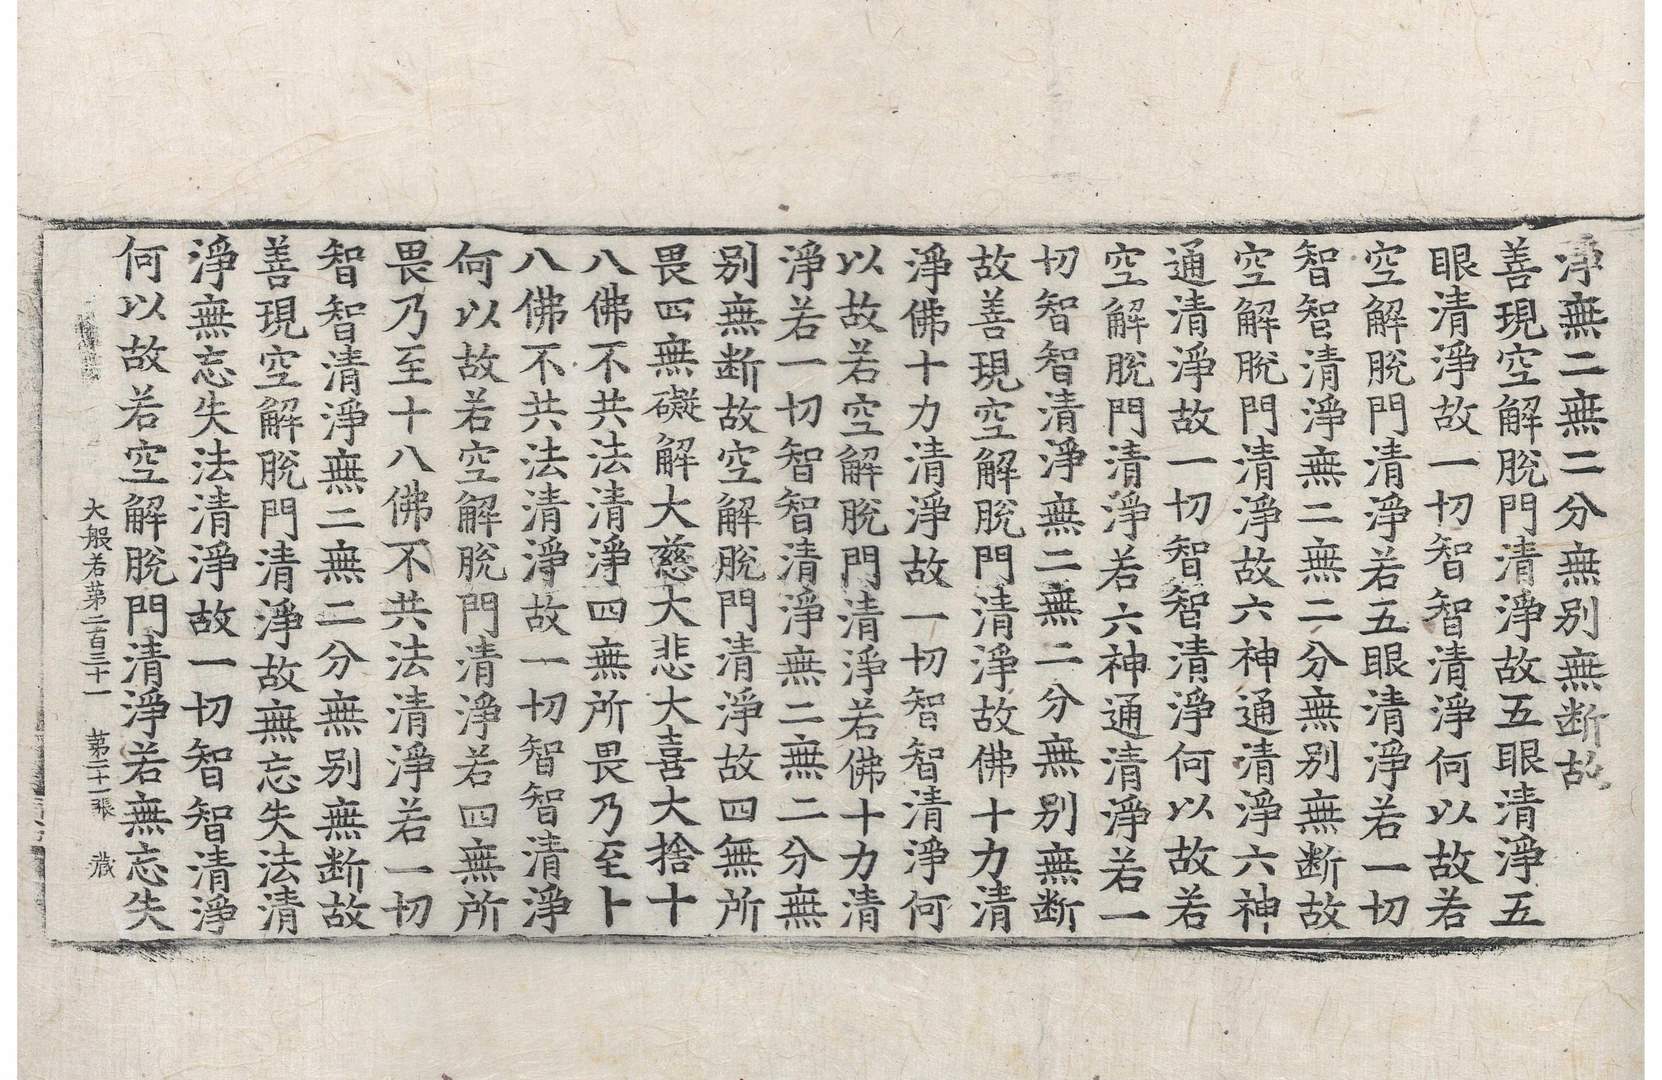 淨無二無二分無别無断故
善現空解脫門清淨故五眼清淨五
眼清淨故一切智智清淨何以故若
空解脫門清淨若五眼清淨若一切
智智清淨無二無二分無别無断故
空解脫門清淨故六神通清淨六神
通清淨故一切智智清淨何以故若
空解脫門清淨若六神通清淨若一
切智智清淨無二無二分無别無断
故善現空解脫門清淨故佛十力清
淨佛十力清淨故一切智智清淨何
以故若空解脫門清淨若佛十力清
淨若一切智智清淨無二無二分無
别無断故空解脫門清淨故四無所
畏四無礙解大慈大悲大喜大捨十
八佛不共法清淨四無所畏乃至卜
八佛不共法清淨故一切智智清淨
何以故若空解脫門清淨若四無所
畏乃至十八佛不共法清淨若一切
智智清淨無二無二分無别無断故
善現空解脫門清淨故無忘失法清
淨無忘失法清淨故一切智智清淨
何以故若空解脫門清淨若無忘失
大般若第二百三十一 第二十一張 藏